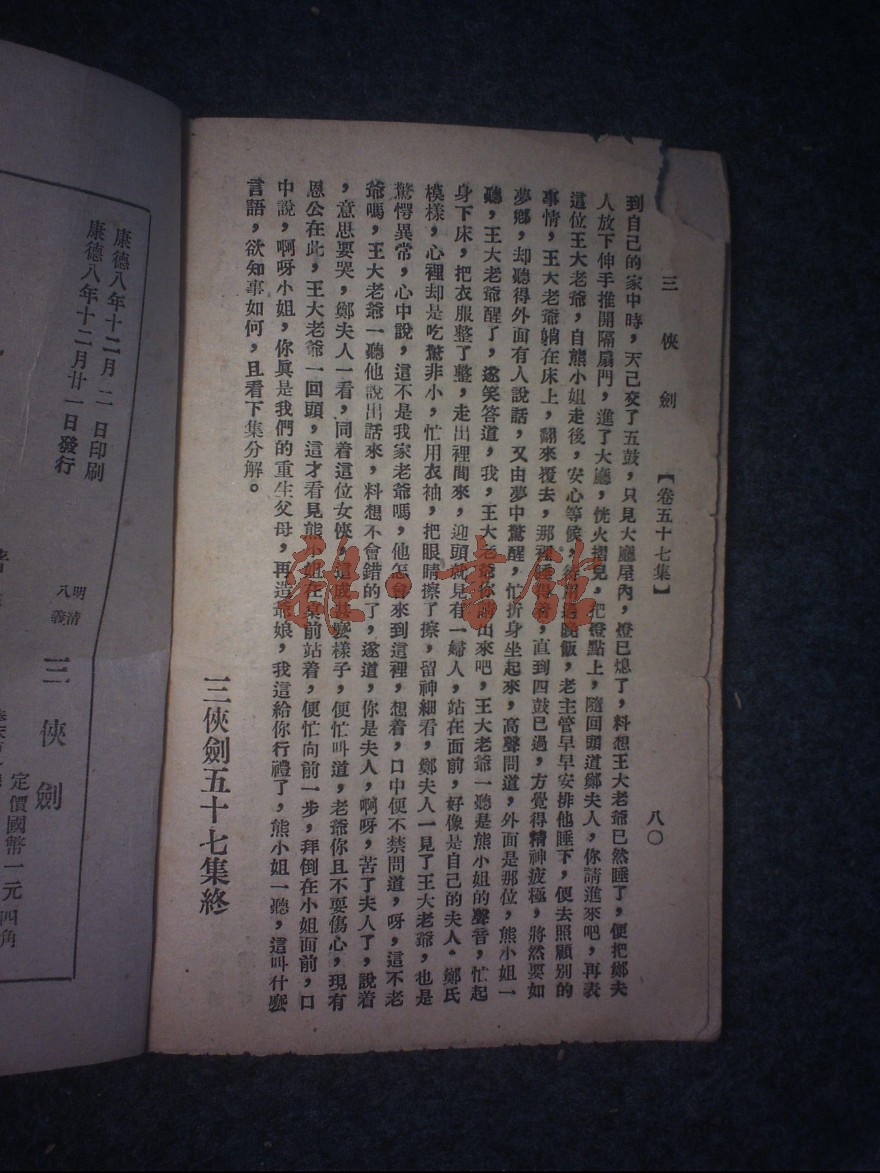 三俠劍
【卷五十七集】
八〇
到自己的家中時，天已交了五鼓，只見大廳屋內，燈已熄了，料想王大老爺已然睡了，便把鄭夫
人放下伸手推開隔扇門，進了大廳，恍火摺見，把燈點上，隨回頭道鄭夫人，你請進來吧，再表
這位王大老爺，自熊小姐走後，安心等候，晚飯，老主管早早安排他睡下，便去照顧別的
事情，王大老爺躺在床上，翻來覆去，那裡睡得着，直到四鼓已過，方覺得精神疲極，將然要如
夢鄉，却聽得外面有人說話，又由夢中驚醒，忙折身坐起來，高聲問道，外面是那位，熊小姐一
聽，王大老爺醒了，遂笑答道，我，王大老爺你出來吧，王大老爺一聽是熊小姐的聲音，忙起
身下床，把衣服整了整，走出裡間來，迎頭就見有一婦人，站在面前，好像是自己的夫人，鄭氏
模樣，心裡却是吃驚非小，忙用衣袖，把眼睛擦了擦，留神細看，鄭夫人一見了王大老爺，也是
驚愕異常，心中說，這不是我家老爺嗎，他怎會來到這裡，想着，口中便不禁問道，呀，這不老
爺嗎，王大老爺一聽他說出話來，料想不會錯的了，遂道，你是夫人，啊呀，苦了夫人了，說着
，意思要哭，鄭夫人一看，同着這位女俠，這成甚麼樣子，便忙叫道，老爺你且不要傷心，現有
恩公在此，王大老爺一回頭，這才看見熊小姐在桌前站着，便忙向前一步，拜倒在小姐面前，口
中說，啊呀小姐，你眞是我們的重生父母，再造爺娘，我這給你行禮了，熊小姐一聽，這叫什麼
言語，欲知事如何，且看下集分解。
三俠劍五十七集終
康德八年十二月二日印刷
康德八年十二月廿一日發行
明清
八義
三俠劍
定價國幣一元四角
雜·書館